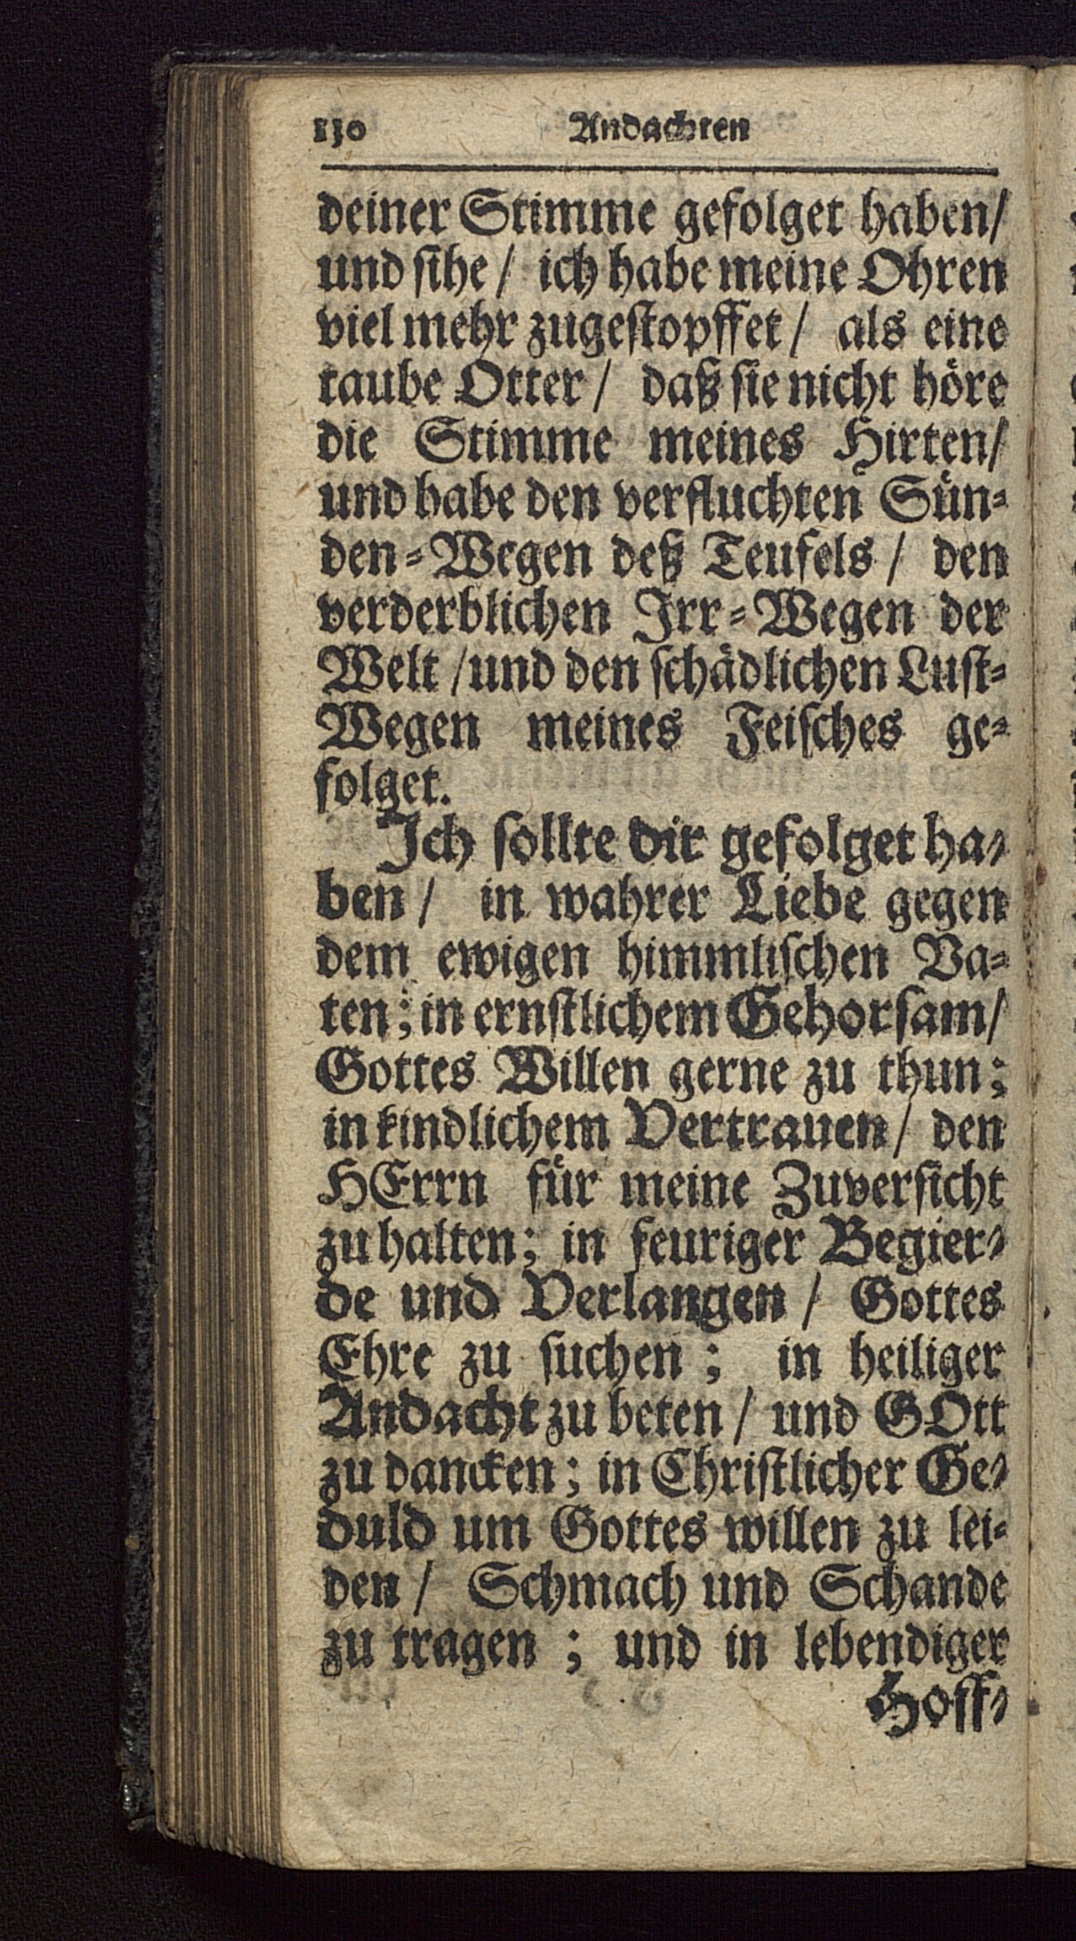 130 Andachten
deiner Stimme gefolget haben/
und sihe/ ich habe meine Ohren
viel mehr zugestopffet/ als eine
taube Otter/ daß sie nicht höre
die Stimme meines Hirten/
und habe den verfluchten Sün-
den-Wegen deß Teufels/ den
verderblichen Irr-Wegen der
Welt/ und den schädlichen Lust-
Wegen meines Feisches ge-
folget.
Ich sollte dir gefolget ha-
ben/ in wahrer Liebe gegen
dem ewigen himmlischen Va-
ten; in ernstlichem Gehorsam/
Gottes Willen gerne zu thun;
in kindlichem Vertrauen/ den
HErrn für meine Zuversicht
zu halten; in feuriger Begier-
de und Verlangen/ Gottes
Ehre zu suchen; in heiliger
Andacht zu beten/ und GOtt
zu dancken; in Christlicher Ge-
duld um Gottes willen zu lei-
den/ Schmach und Schande
zu tragen; und in lebendiger
Hoff-